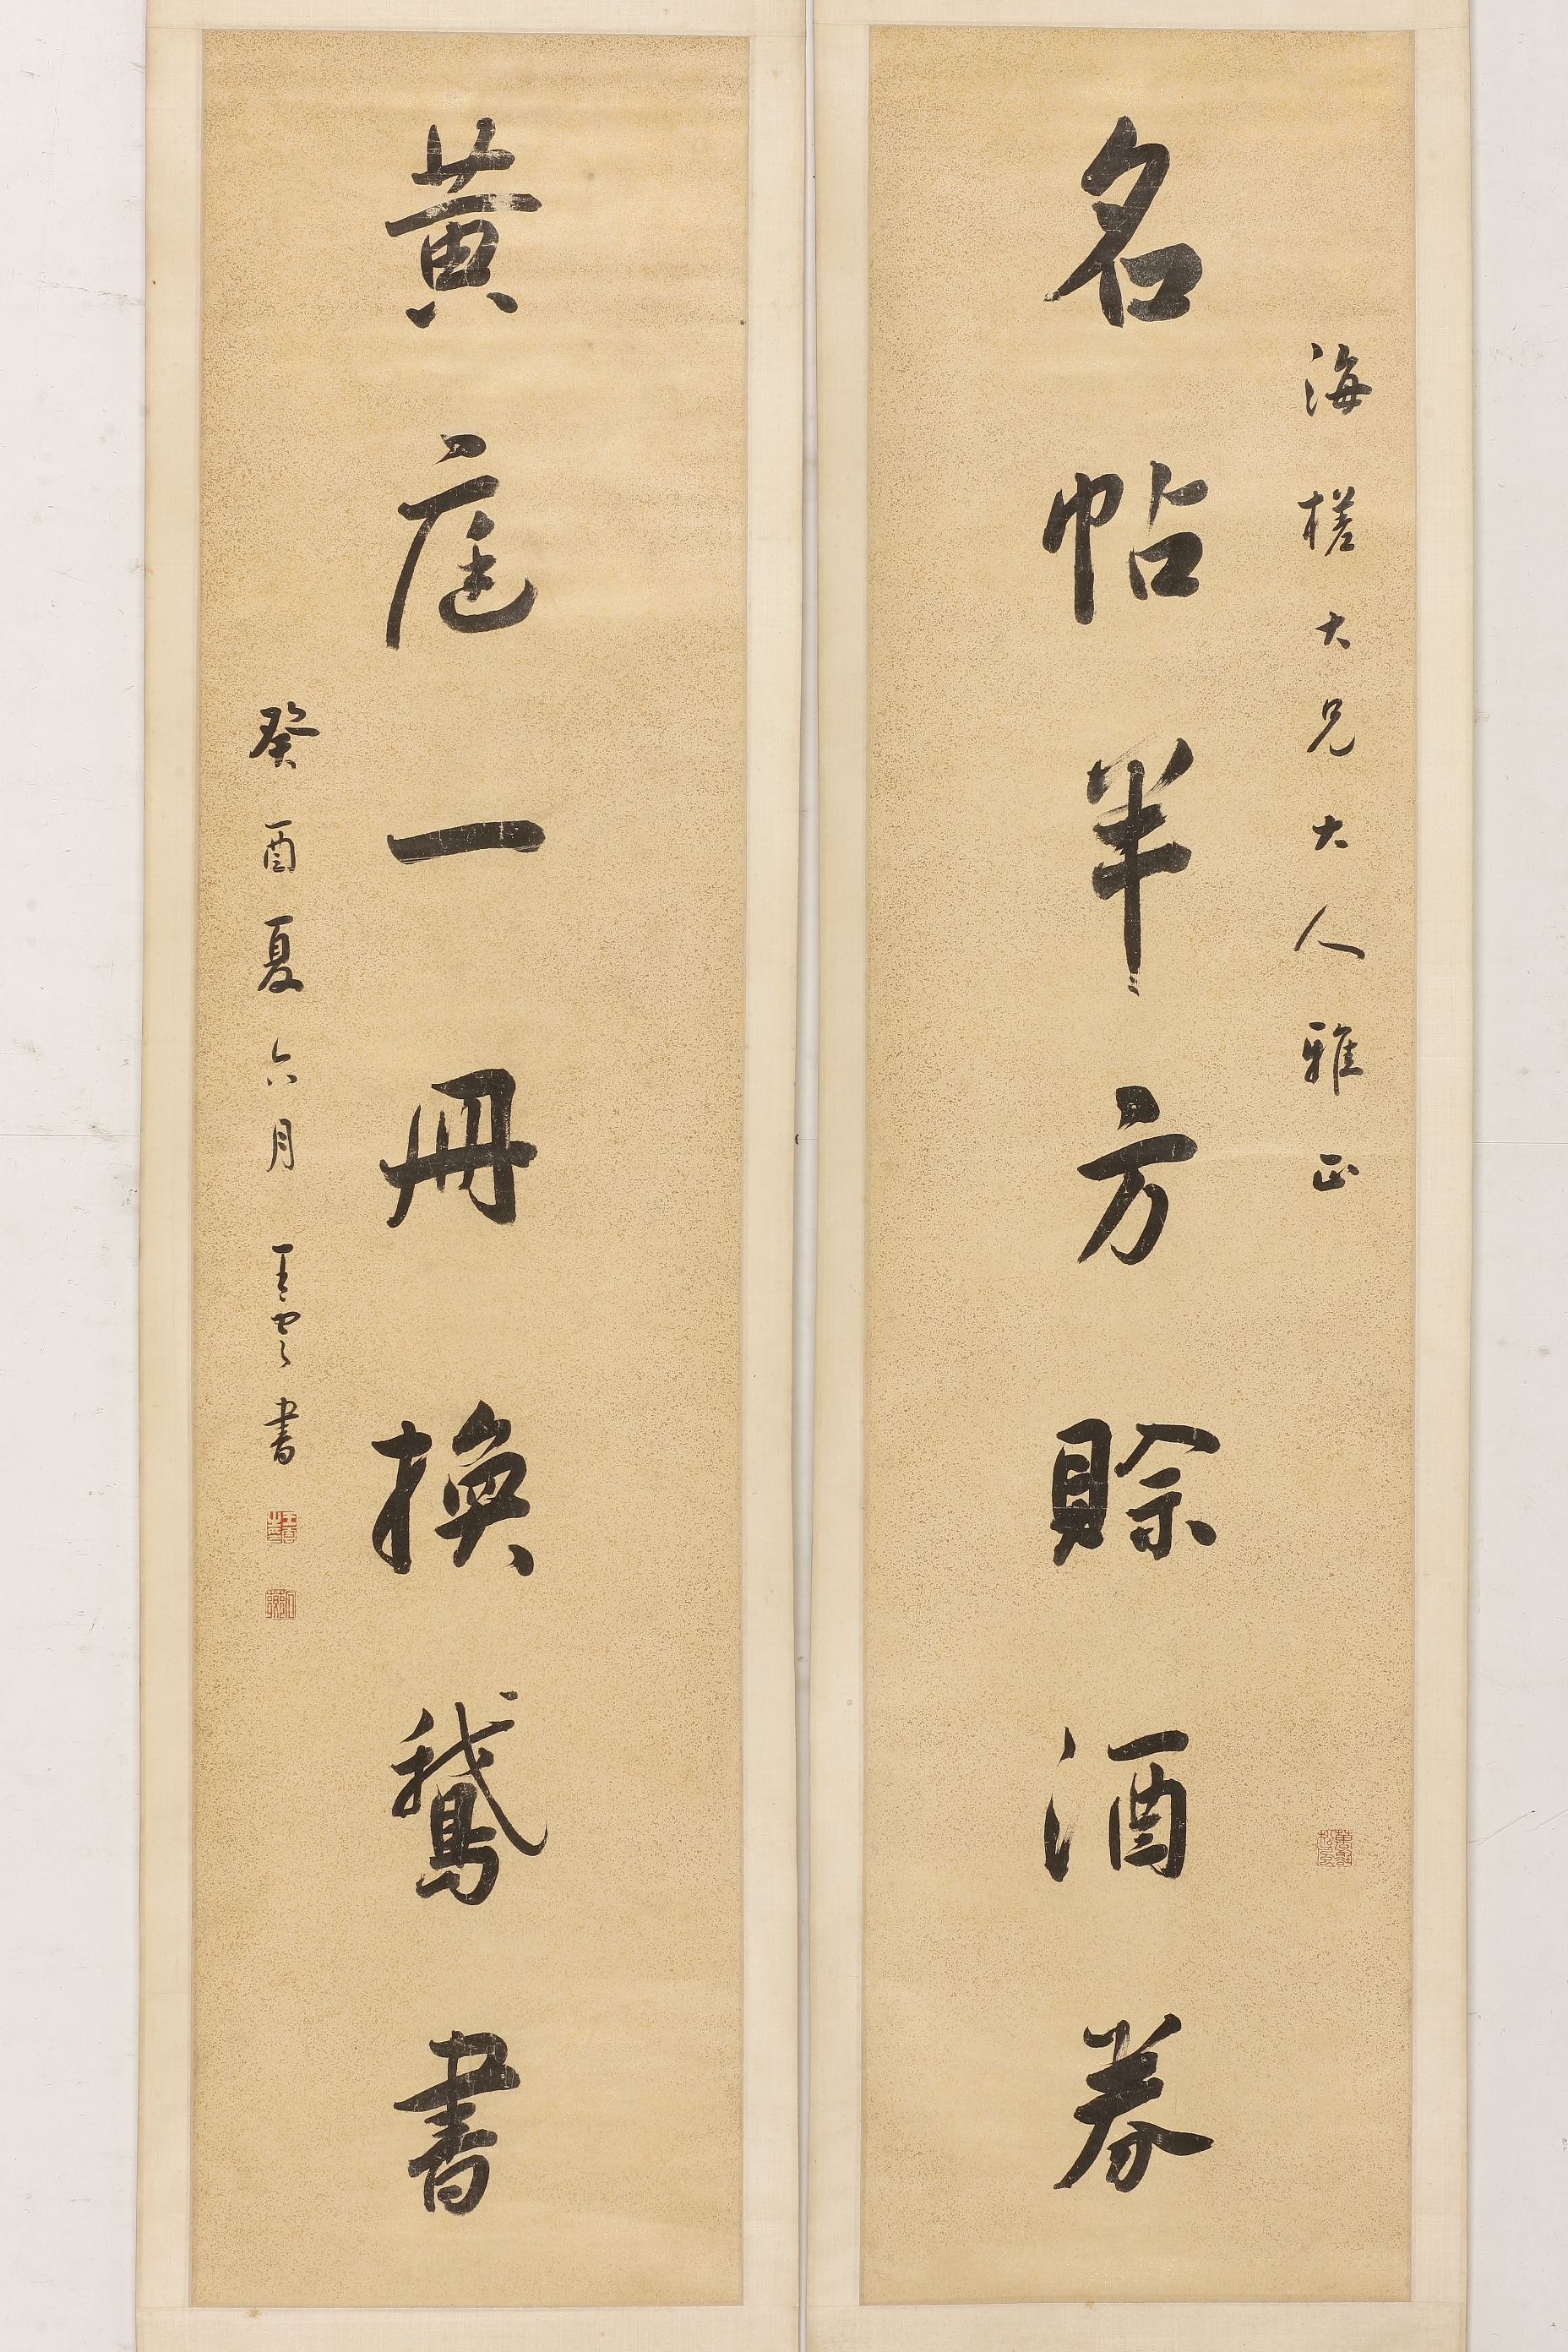 海槎大兄大人雅正
名帖半方賒酒券
黃庭一冊換鵝書
癸酉夏六月王雲書